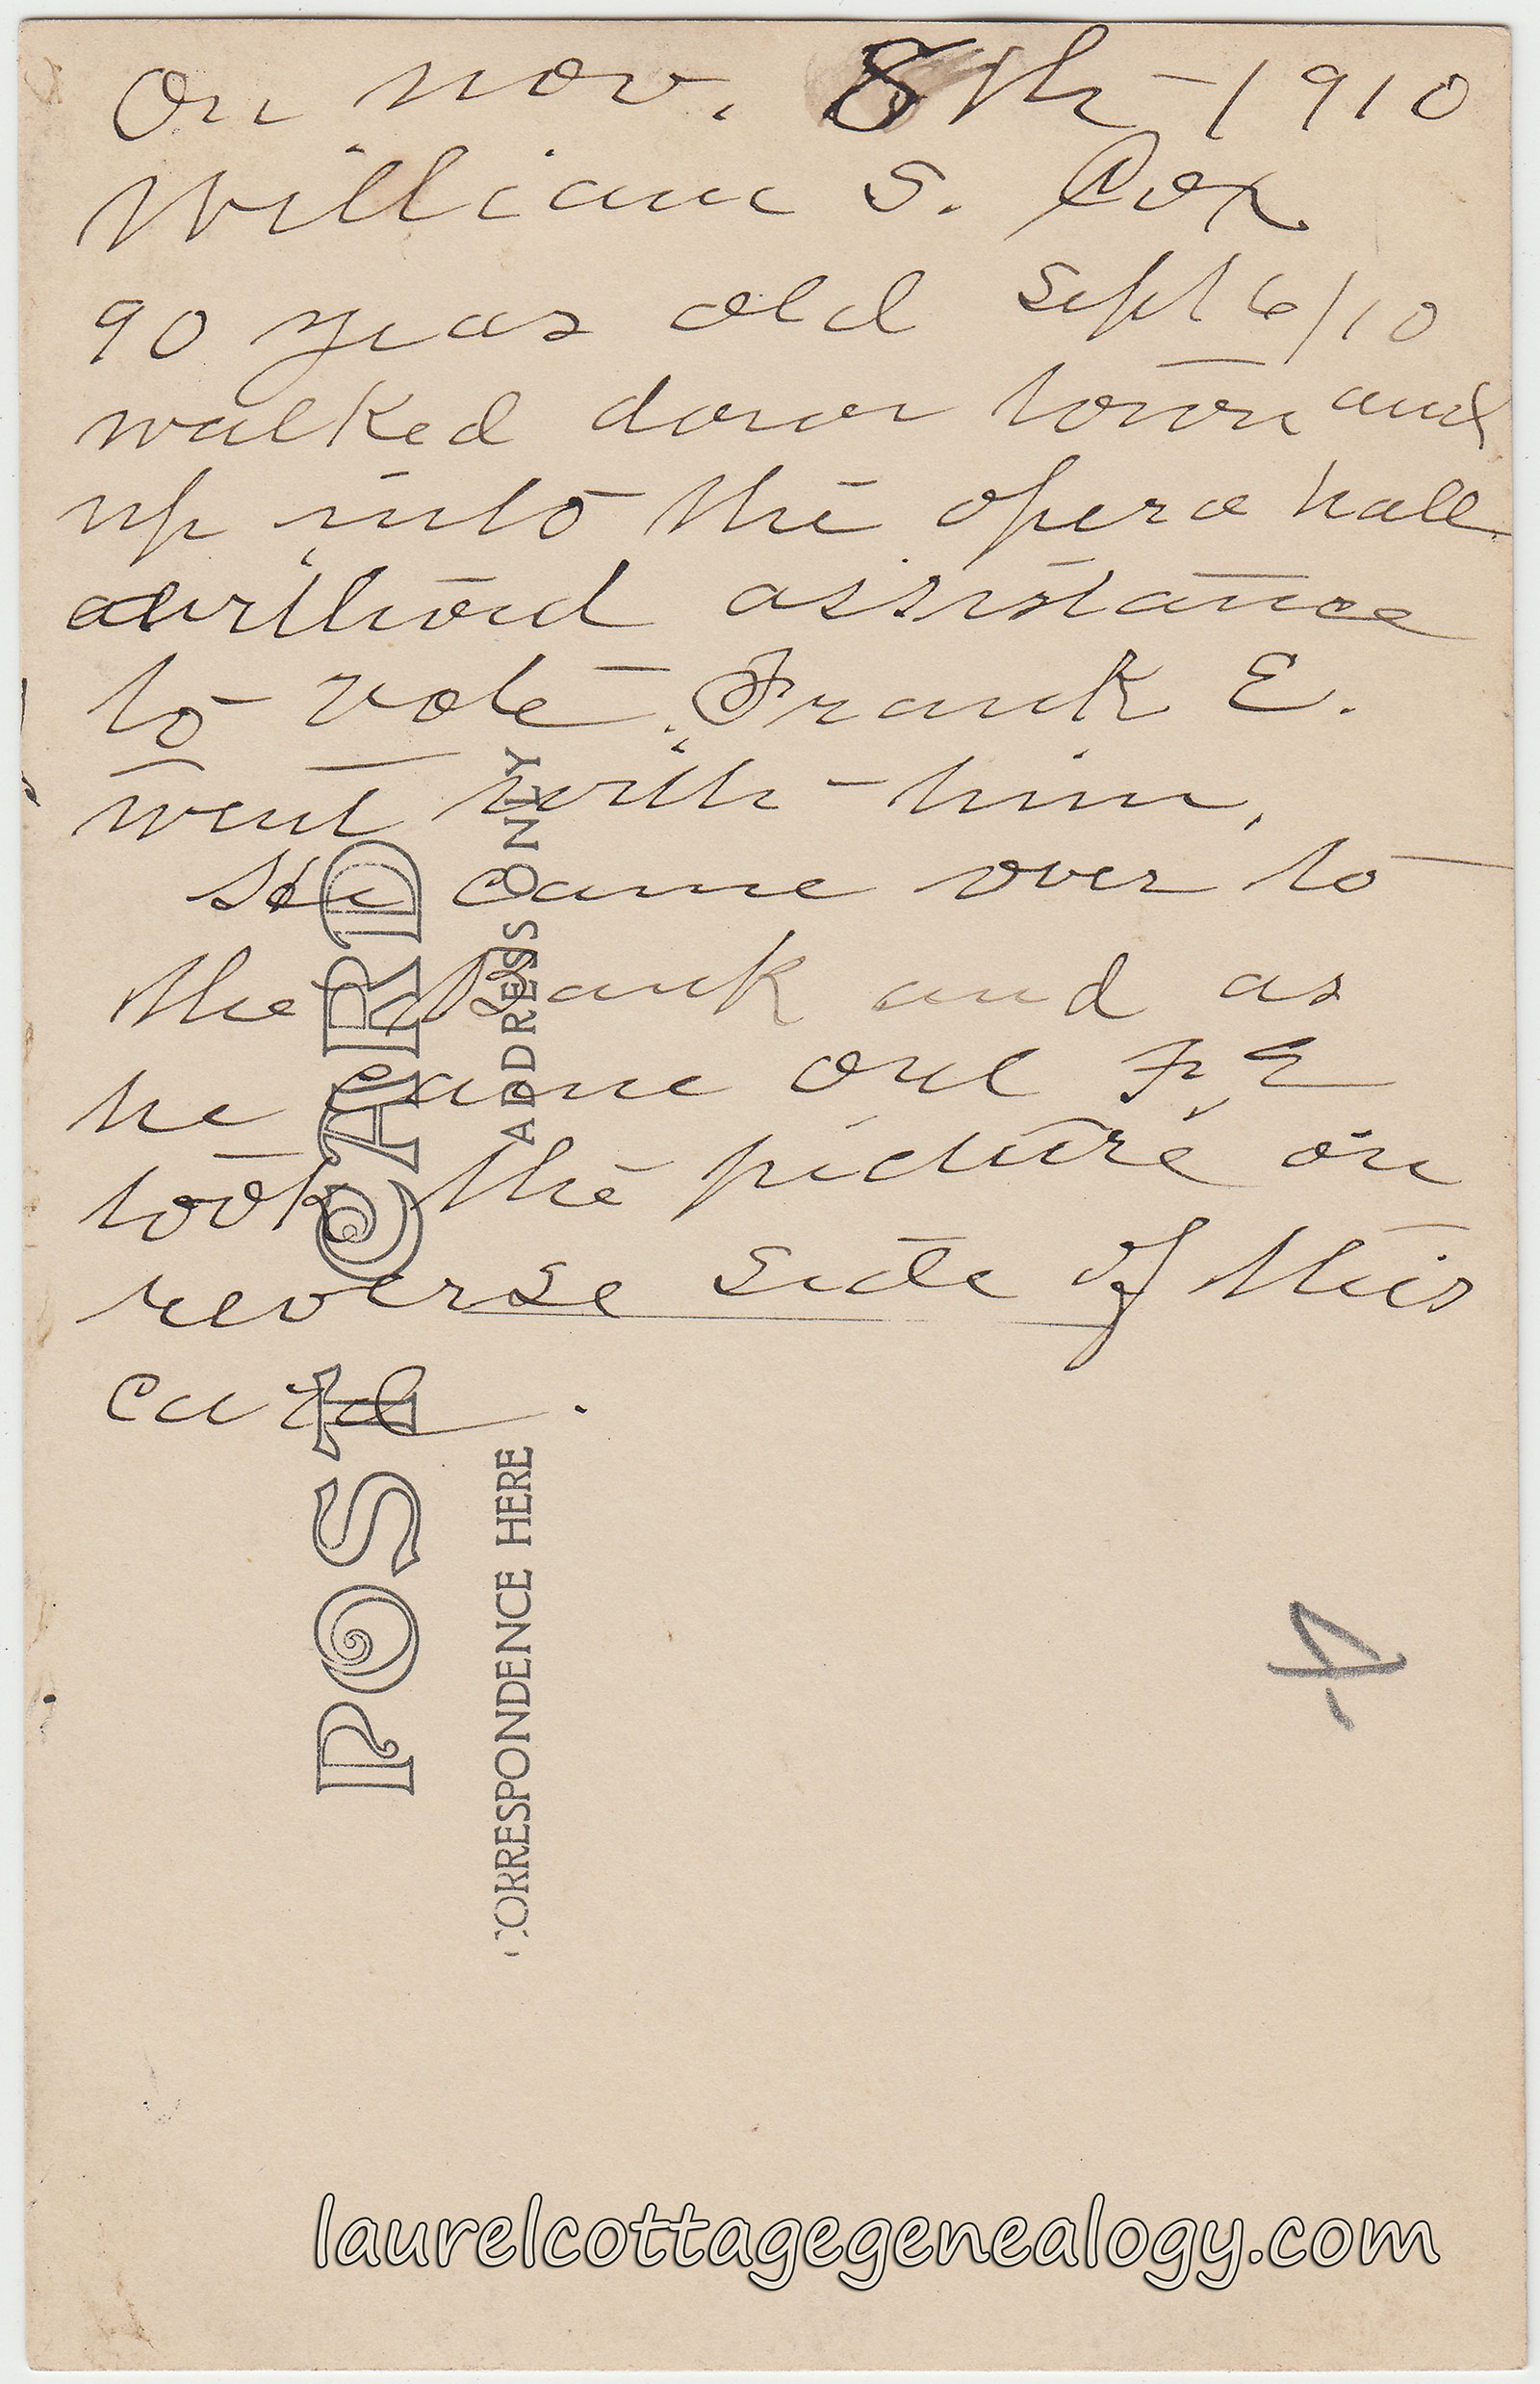 On Nov. 8th - 1910
William S. Cox
90 years old Sept 6/10
walked down town and
up into the opera hall
without assistance
to vote. Frank E.
went with him.
He came over to
the bank and as
he came out F. E
took the picture on
reverse side of this
card.
POST CARD
CORRESPONDENCE HERE
ADDRESS ONLY
4
laurelcottagegenealogy.com